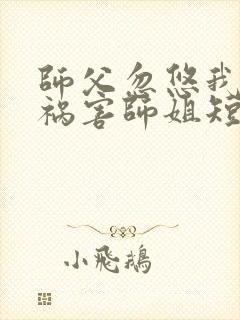 師父忽悠我
祸害師姐短
小飛鵝